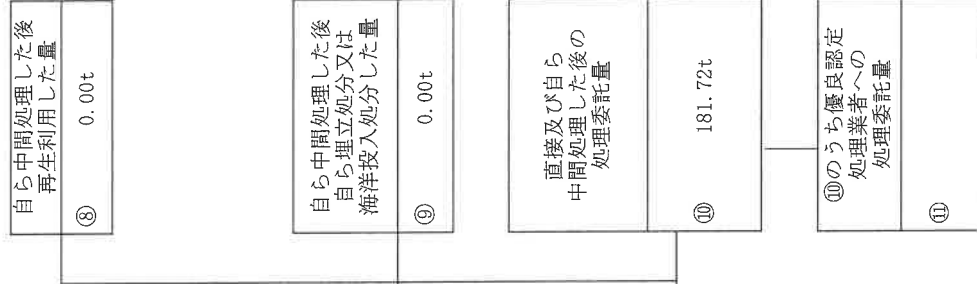 自ら中間処理した後
再生利用した量
⑧ 0.00t
自ら中間処理した後
自ら埋立処分又は
海洋投入処分した量
⑨ 0.00t
直接及び自ら
中間処理した後の
処理委託量
⑩ 181.72t
⑩のうち優良認定
処理業者への
処理委託量
⑪